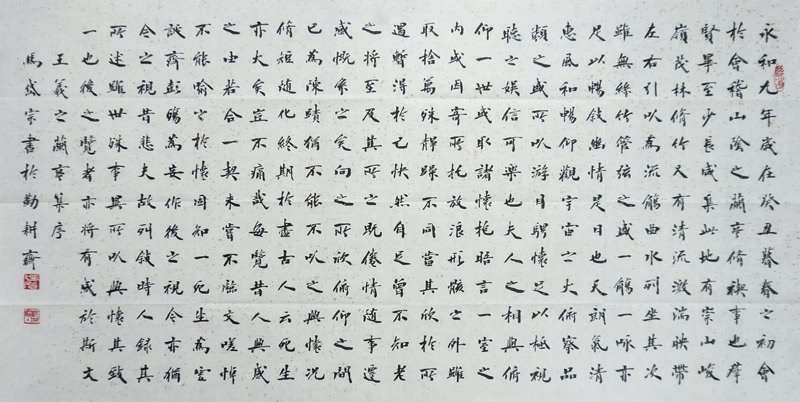 永和九年歲在癸丑暮春之初會
於會稽山陰之蘭亭脩禊事也群
賢畢至少長咸集此地有崇山峻
嶺茂林脩竹又有清流激湍映帶
左右引以為流觴曲水列坐其次
雖無絲竹管弦之盛一觴一詠亦
足以暢敘幽情是日也天朗氣清
惠風和暢仰觀宇宙之大俯察品
類之盛所以游目騁懷足以極視
聽之娛信可樂也夫人之相與俯
仰一世或取諸懷抱晤言一室之
內或因寄所托放浪形骸之外雖
取捨萬殊靜躁不同當其欣於所
遇暫得於己快然自足曾不知老
之將至及其所之既倦情隨事遷
感慨係之矣向之所欣俯仰之間
已為陳蹟猶不能不以之興懷況
脩短隨化終期於盡古人云死生
亦大矣豈不痛哉每覽昔人興感
之由若合一契未嘗不臨文嗟悼
不能喻之於懷固知一死生為虛
誕齊彭殤為妄作後之視今亦猶
今之視昔悲夫故列敘時人錄其
所述雖世殊事異所以興懷其致
一也後之覽者亦將有感於斯文
王羲之蘭亭集序
馬盛宗書於勤耕齋